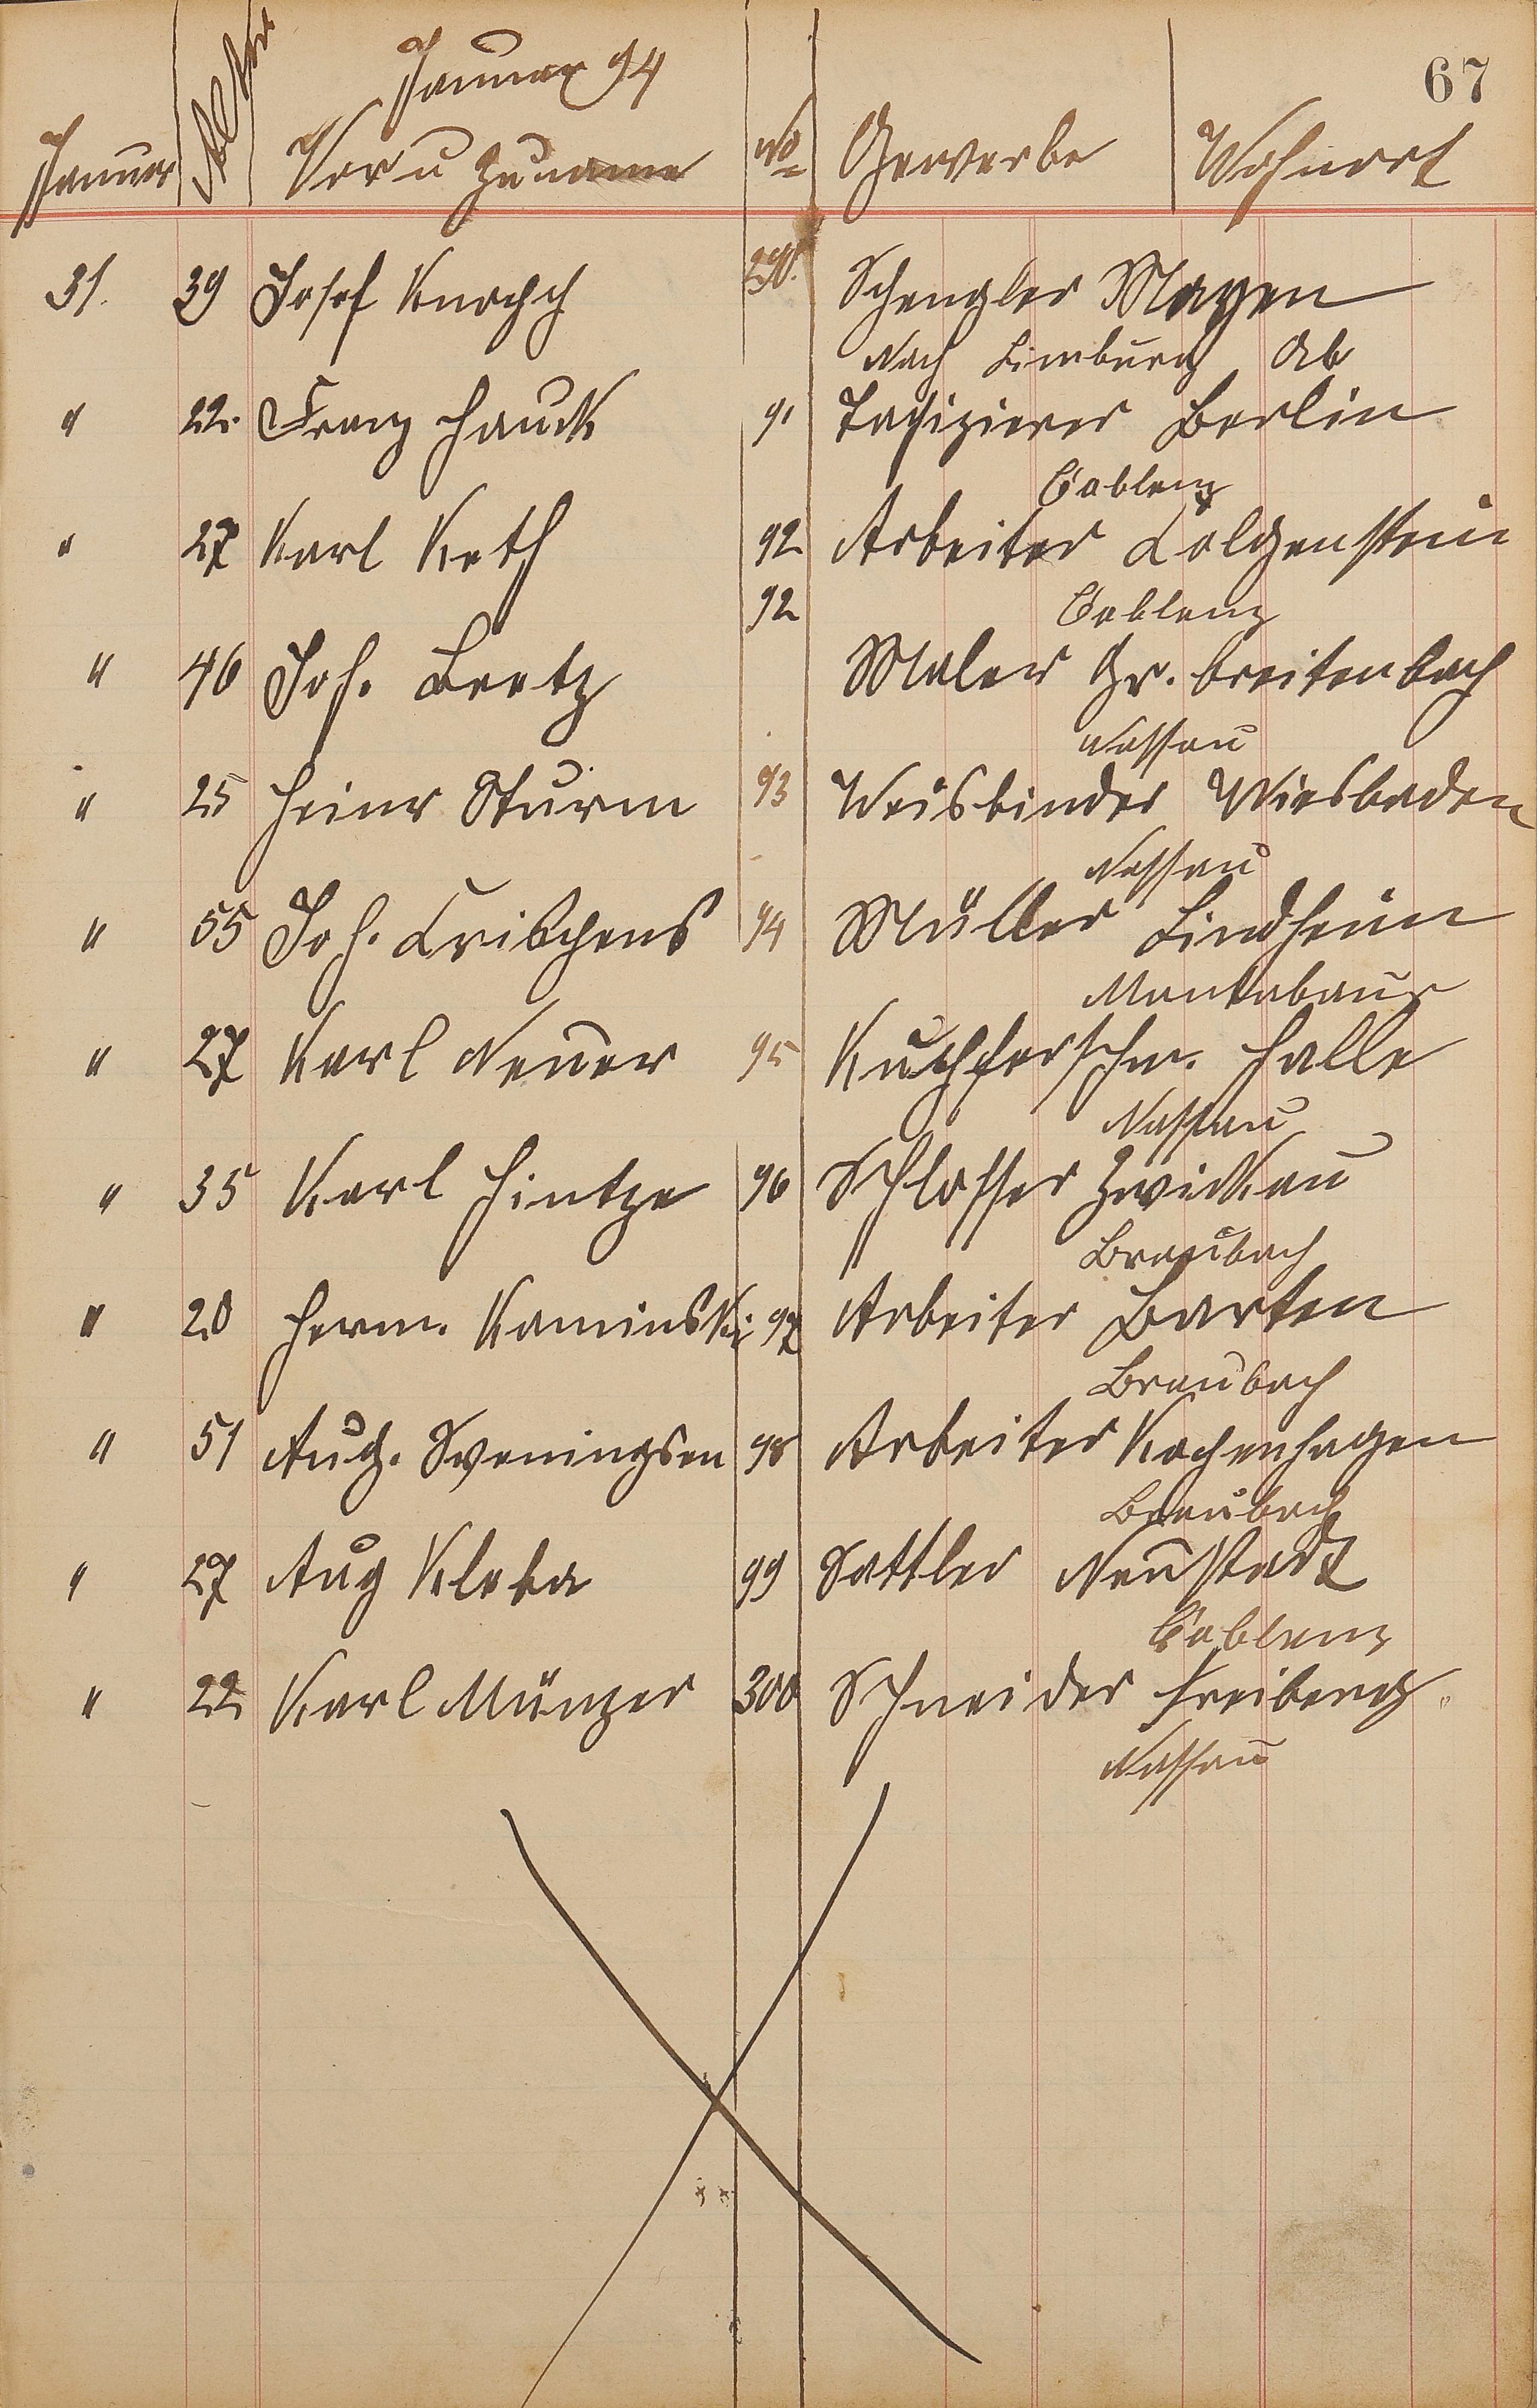 Januar 94
67
Januar Alter Vor u Zuname No Gewerbe Wohnort
31. 39 Josef Knopp 290. Spengler Mayen
Nach Limburg ab
" 22. Franz Hauck 91 Tapizierer Berlin
Coblenz
" 27 Karl Keth 92 Arbeiter Colgenstein
92 Coblenz
" 46 Joh. Bretz Maler Gr. breitenbach
Nassau
" 25 Heinr Sturm 93 Weisbinder Wiesbaden
Nassau
" 55 Joh. 94 Müller Lindheim
Montabaur
" 27 Karl Neuer 95 Kupferschm. Halle
Nassau
" 35 Karl Hintze 96 Schlosser Zwickau
Braubach
" 20 Herm. Kaminski 97 Arbeiter Barten
Braubach
" 51 Aug. Sveningsen 98 Arbeiter Kopenhagen
Braubach
" 27 Aug Kleba 99 Sattler Neustadt
Coblenz
" 22 Karl Münzer 300 Schneider Freiberg.
Nassau